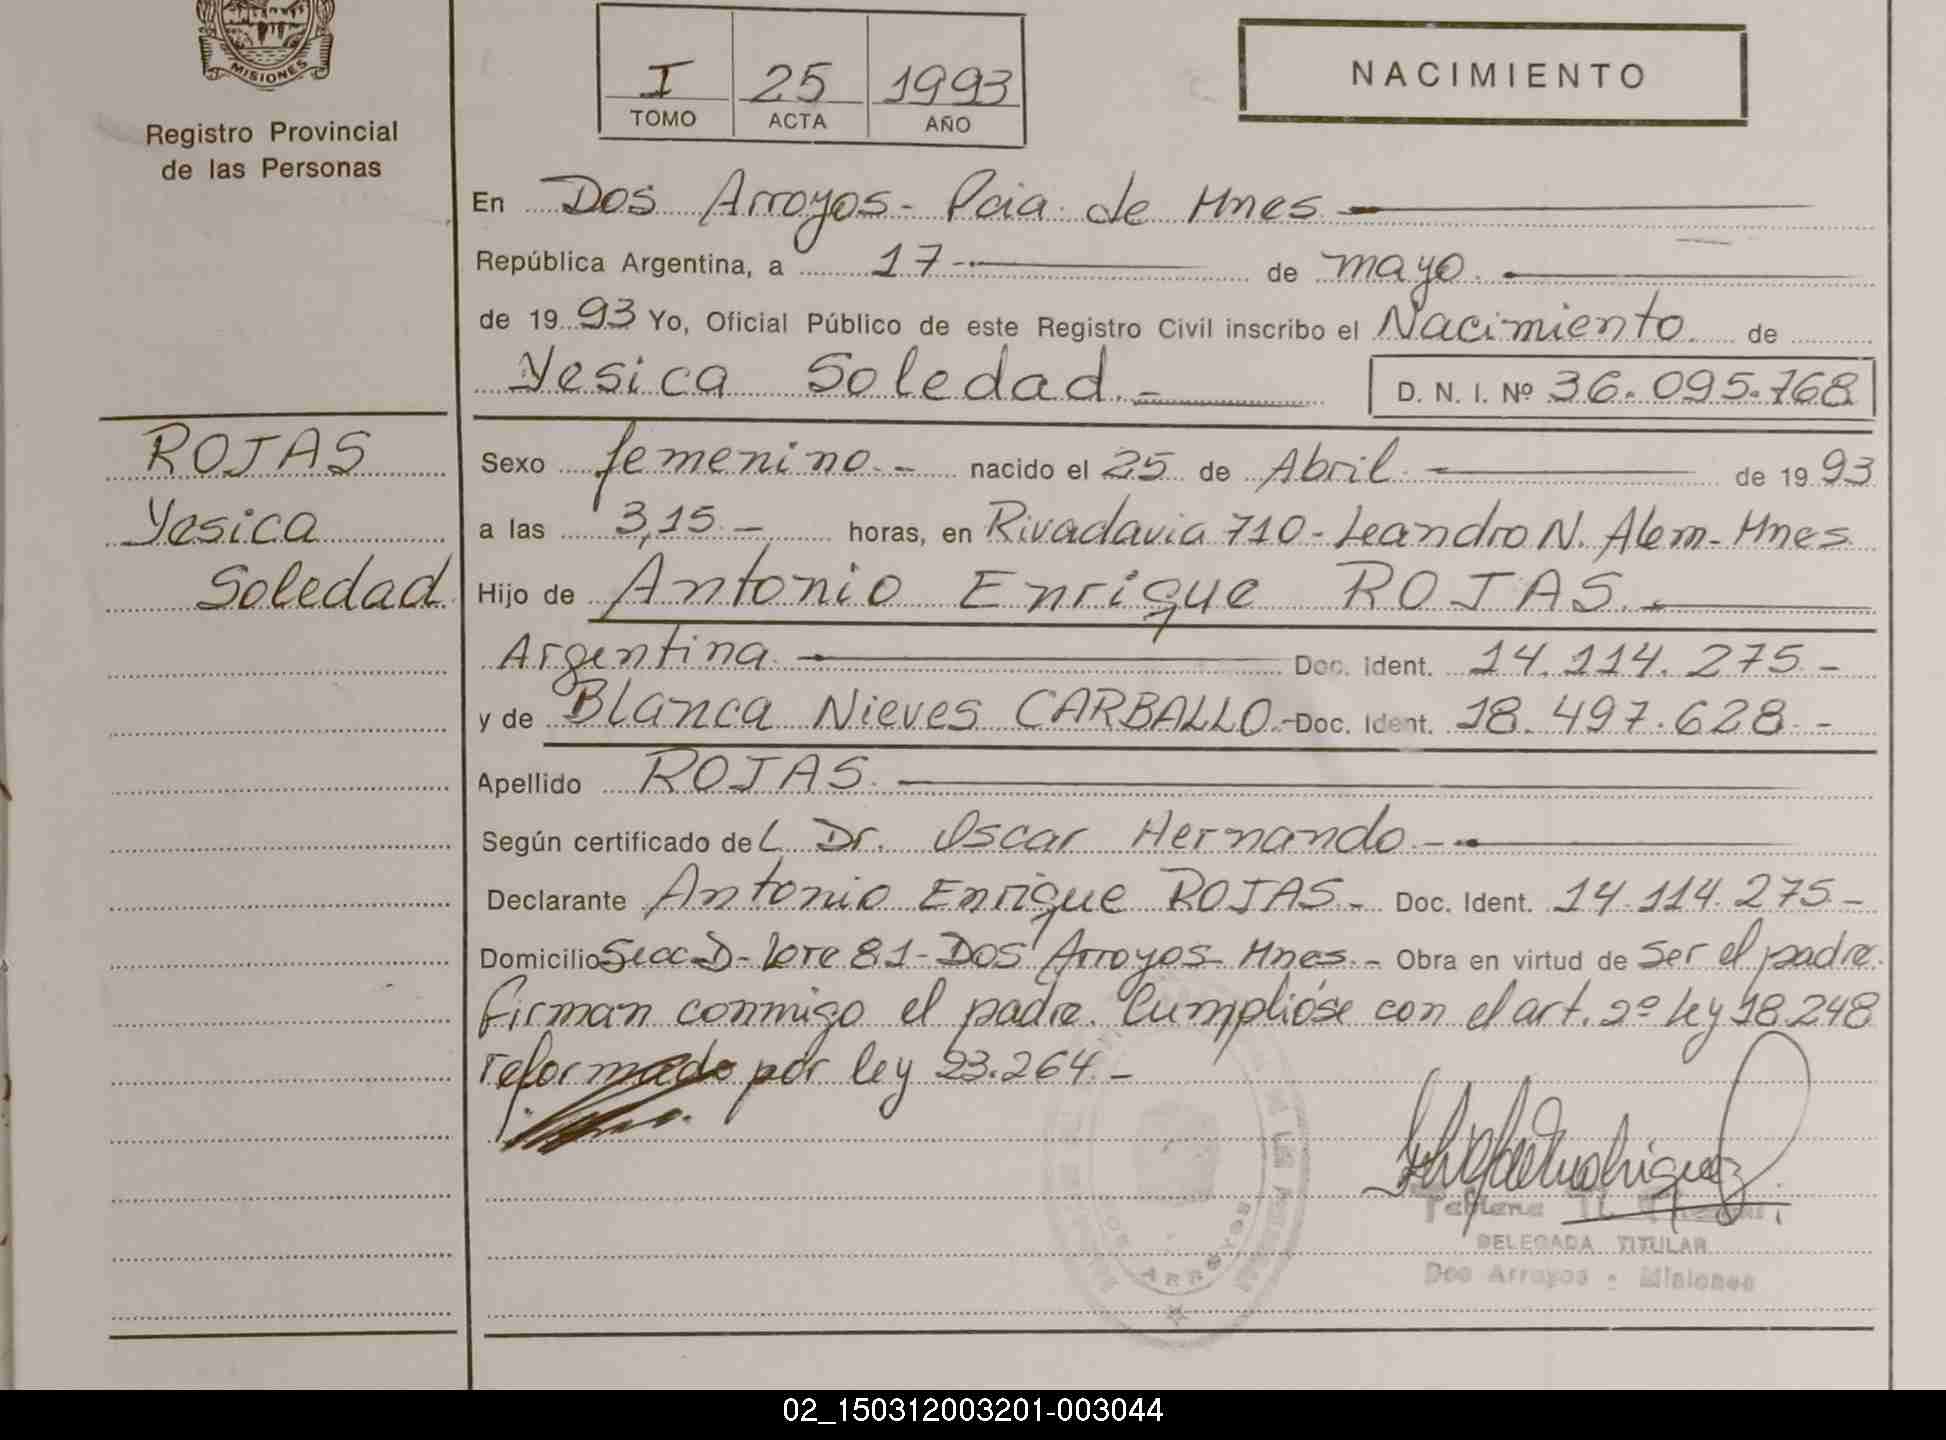 MISIONES
Registro Provincial
de las Personas
I 25 1993
TOMO ACTA AÑO
NACIMIENTO
En Dos Arroyos - Pcia de Mnes
República Argentina, a 17 - de mayo.
de 19 93 Yo, Oficial Público de este Registro Civil inscribo el Nacimiento de
Yesica Soledad. - D. N. I. Nº 36.095.768
ROJAS
Yesica
Soledad
Sexo femenino. - nacido el 25 de Abril de 19 93
a las 3,15 - horas, en Rivadavia 710 - Leandro N. Alem - Mnes
Hijo de Antonio Enrique ROJAS.
Argentina Doc. Ident. 14.114.275 -
y de Blanca Nieves CARBALLO. - Doc. Ident. 18.497.628 -
Apellido ROJAS.
Según certificado del Dr. Oscar Hernando -
Declarante Antonio Enrique ROJAS. - Doc. Ident. 14.114.275 -
Domicilio Secc. D - Lote 81 - Dos Arroyos - Mnes. - Obra en virtud de ser el padre.
firman conmigo el padre. Cumplióse con el art. 2º ley 18.248
reformado por ley 23.264. -
DELEGADA TITULAR
Dos Arroyos - Misiones
ARROYOS
02_150312003201-003044